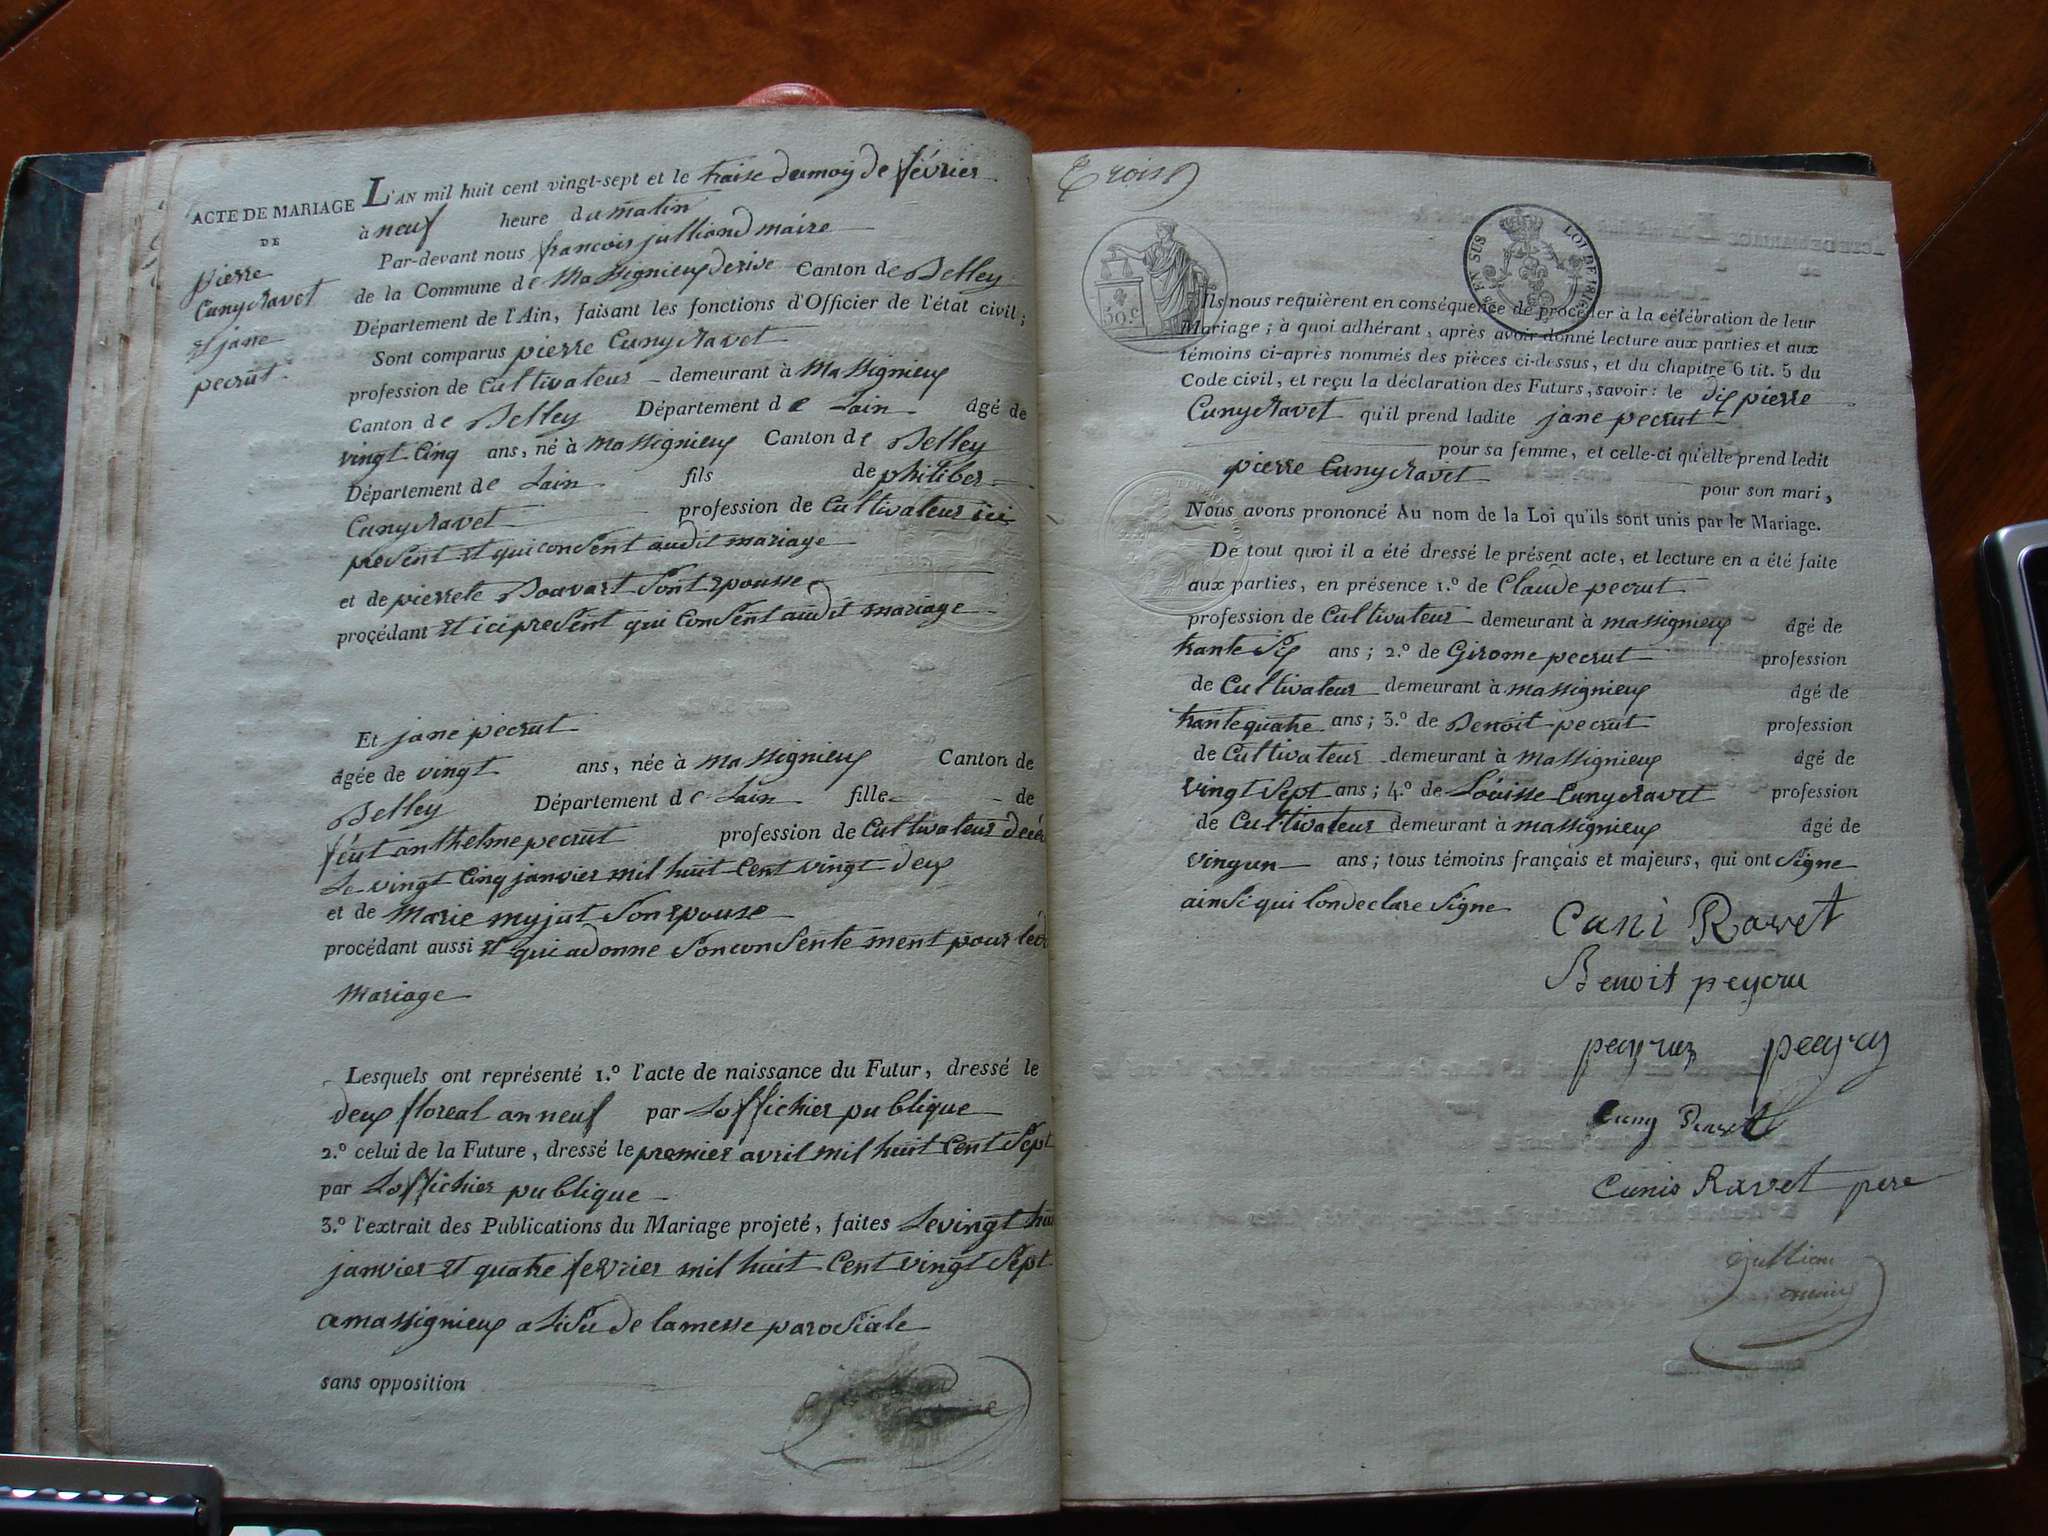 ACTE DE MARIAGE
DE
pierre
Cuny Ravet
et jane
pecrut
L'AN mil huit cent vingt-sept et le traise du moy de février
à neuf heure du matin
Par-devant nous francois julliand maire
de la Commune de Massignieux de rive Canton de Belley
Département de l'Ain, faisant les fonctions d'Officier de l'état civil;
Sont comparus pierre Cuny Ravet
profession de Cultivateur demeurant à Massignieux
Canton de Belley Département de Lain âgé de
vingt Cinq ans, né à Massignieux Canton de Belley
Département de Lain fils de philiber
Cuny Ravet profession de Cultivateur ici
present et qui consent audit mariage
et de pierrete Bouvart sont epousse
proçédant et ici present qui consent audit mariage
Et jane pecrut
âgée de vingt ans, née à Massignieux Canton de
Belley Département de Lain fille de
feut anthelme pecrut profession de Cultivateur
Le vingt Cinq janvier mil huit Cent vingt deux
et de Marie myjut son epouse
procédant aussi et qui a donne son consente ment pour
Mariage
Lesquels ont représenté 1.º l'acte de naissance du Futur, dressé le
deux floreal an neuf par Loffichier publique
2.º celui de la Future, dressé le premier avril mil huit Cent Sept
par Loffichier publique
3.º l'extrait des Publications du Mariage projeté, faites Le vingt
janvier et quatre fevrier mil huit Cent vingt Sept
a massignieux a lisu de la messe parosiale
sans opposition
Trois
30 c.
EN SUS
LOI DE 1816
Ils nous requièrent en conséquence de procéder à la célébration de leur
Mariage; à quoi adhérant, après avoir donné lecture aux parties et aux
témoins ci-après nommés des pièces ci-dessus, et du chapitre 6 tit. 5 du
Code civil, et reçu la déclaration des Futurs, savoir: le dix pierre
Cuny Ravet qu'il prend ladite jane pecrut
pour sa femme, et celle-ci qu'elle prend ledit
pierre Cuny Ravet pour son mari,
Nous avons prononcé Au nom de la Loi qu'ils sont unis par le Mariage.
De tout quoi il a été dressé le présent acte, et lecture en a été faite
aux parties, en présence 1.º de Claude pecrut
profession de Cultivateur demeurant à massignieux âgé de
trante Six ans; 2.º de Girome pecrut profession
de Cultivateur demeurant à massignieux âgé de
trante quatre ans; 3.º de Benoit pecrut profession
de Cultivateur demeurant à massignieux âgé de
vingt Sept ans; 4.º de Louisse Cuny Ravet profession
de Cultivateur demeurant à massignieux âgé de
vingun ans; tous témoins français et majeurs, qui ont Signe
ainsi qui lon declare signe
Cani Ravet
Benoit peycru
Cunis Ravet pere